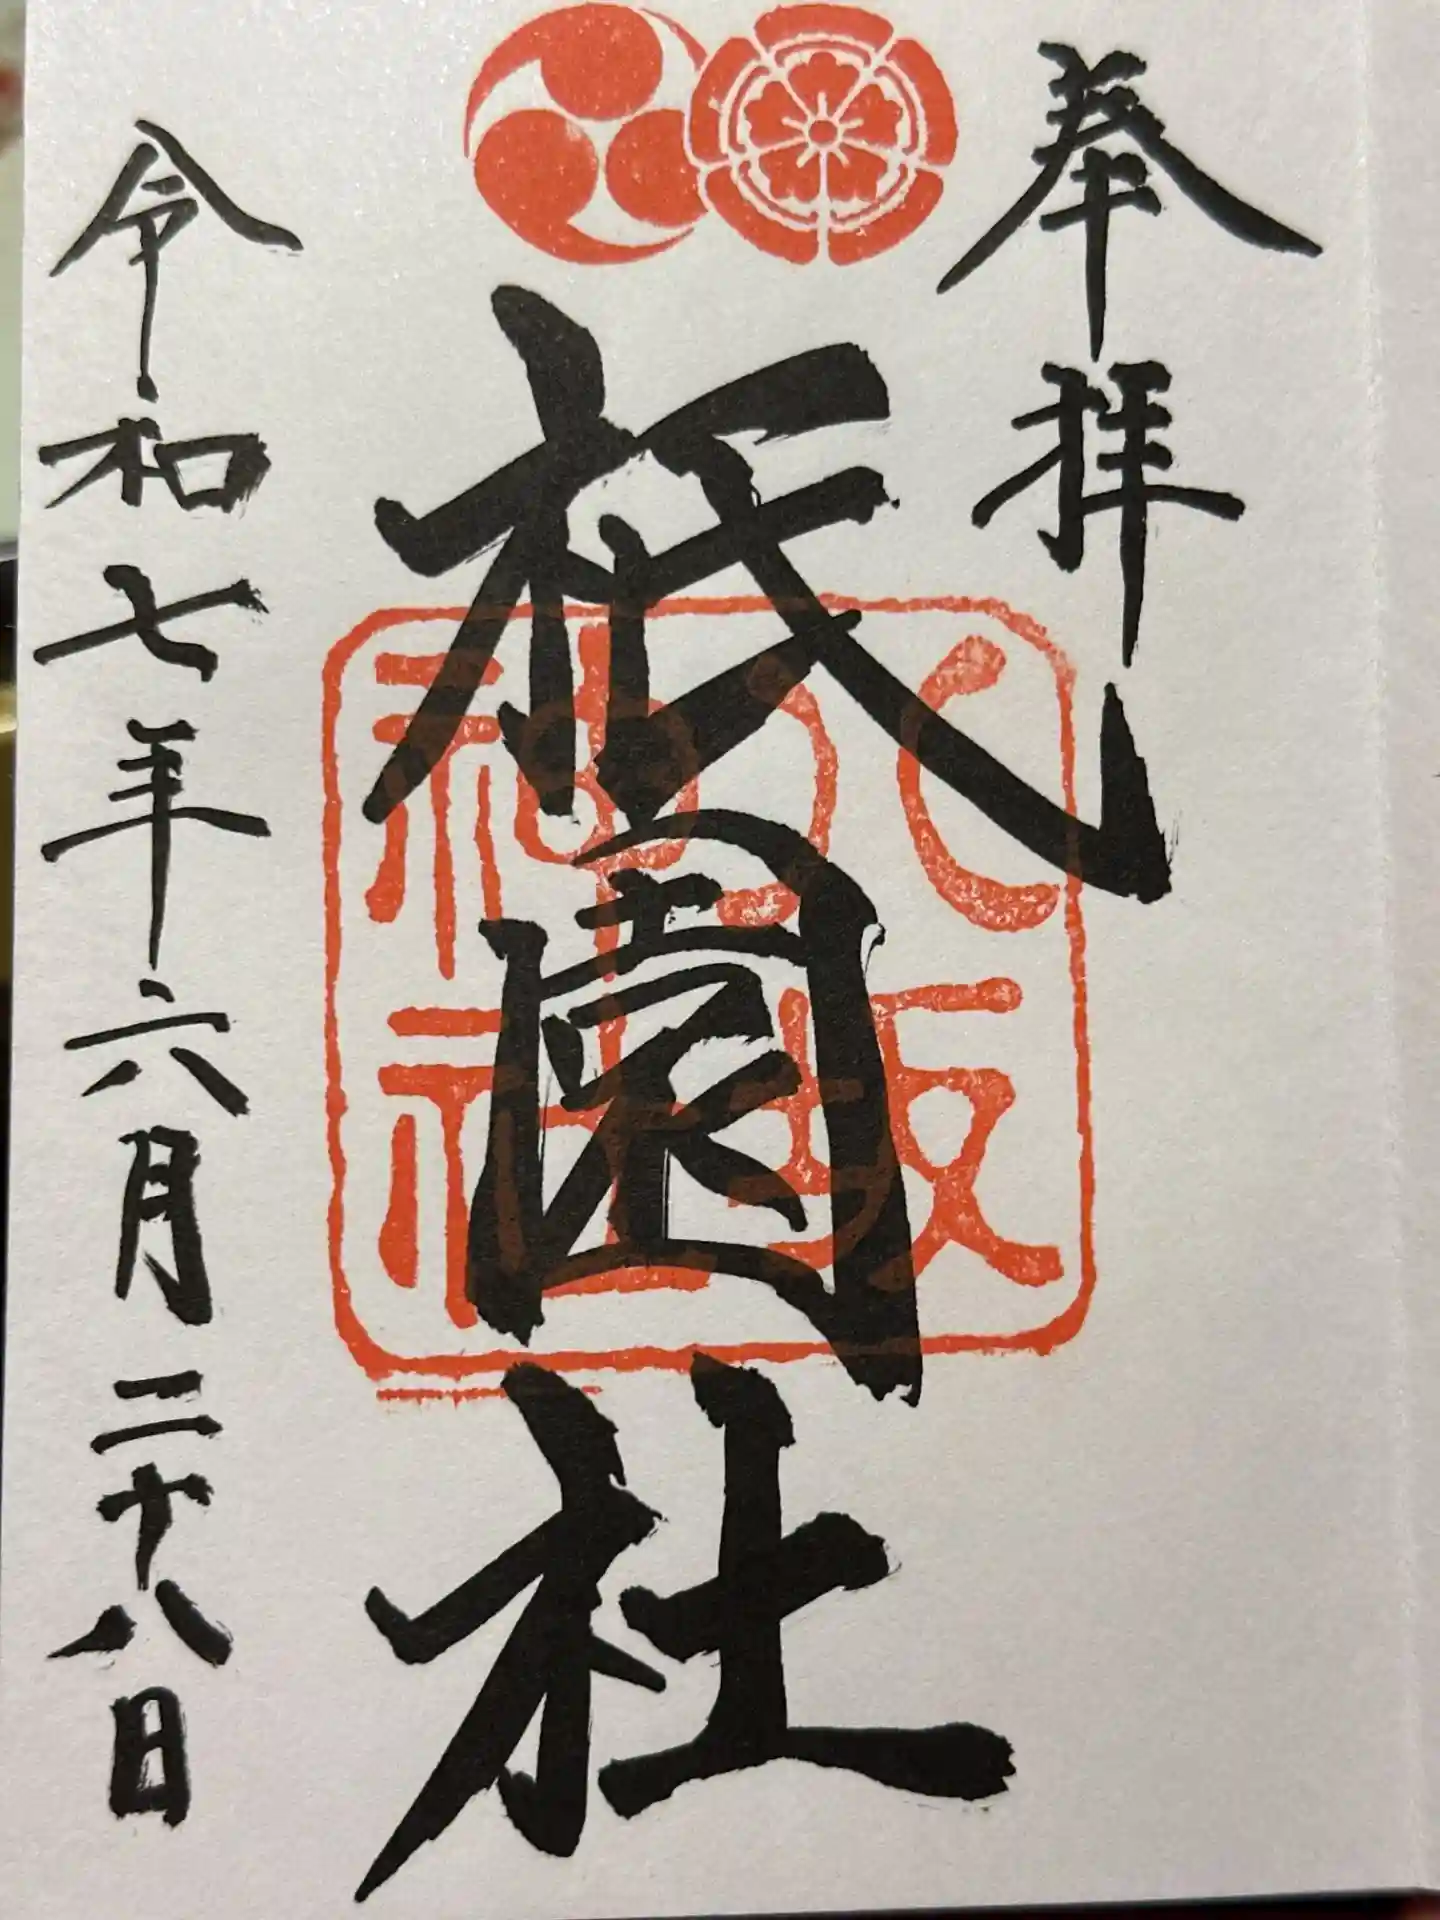 奉拝
祇園社
八坂
神社
令和七年六月二十八日